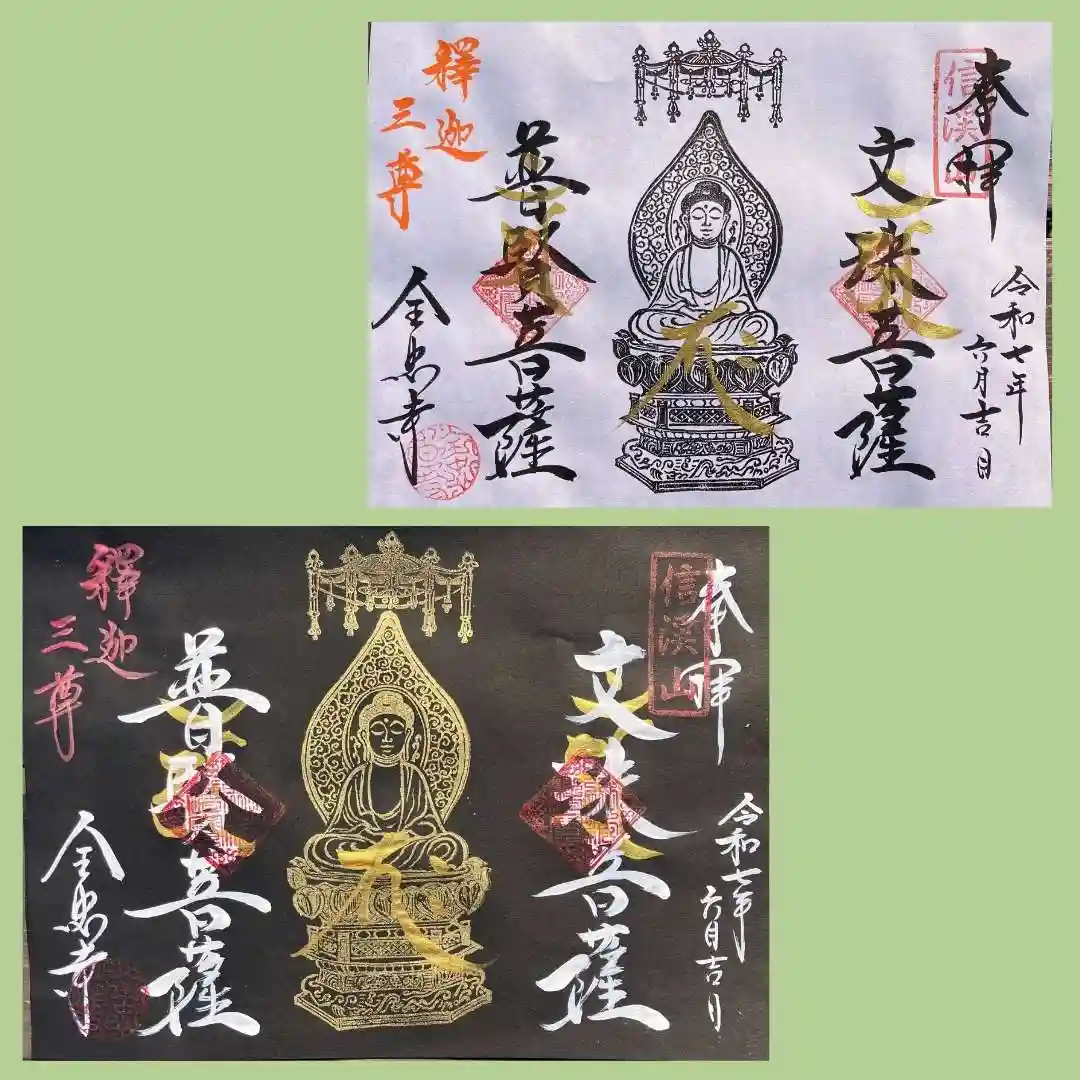 奉拝
信渓山
令和七年
六月吉日
文殊菩薩
普賢菩薩
釋迦
三尊
全忠寺
奉拝
信渓山
令和七年
六月吉日
文殊菩薩
普賢菩薩
釋迦
三尊
全忠寺